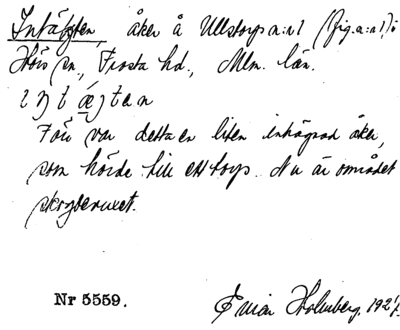 Intäkten, åker å Ullstorp n:o 1 (fig. n:o 1) i
Hörs sn, Frosta hd., Mlm. län.
Förr var detta en liten inhägnad åker,
som hörde till ett torp. Nu är området
skogbevuxet.
Nr 5559.
Holmberg, 1927.